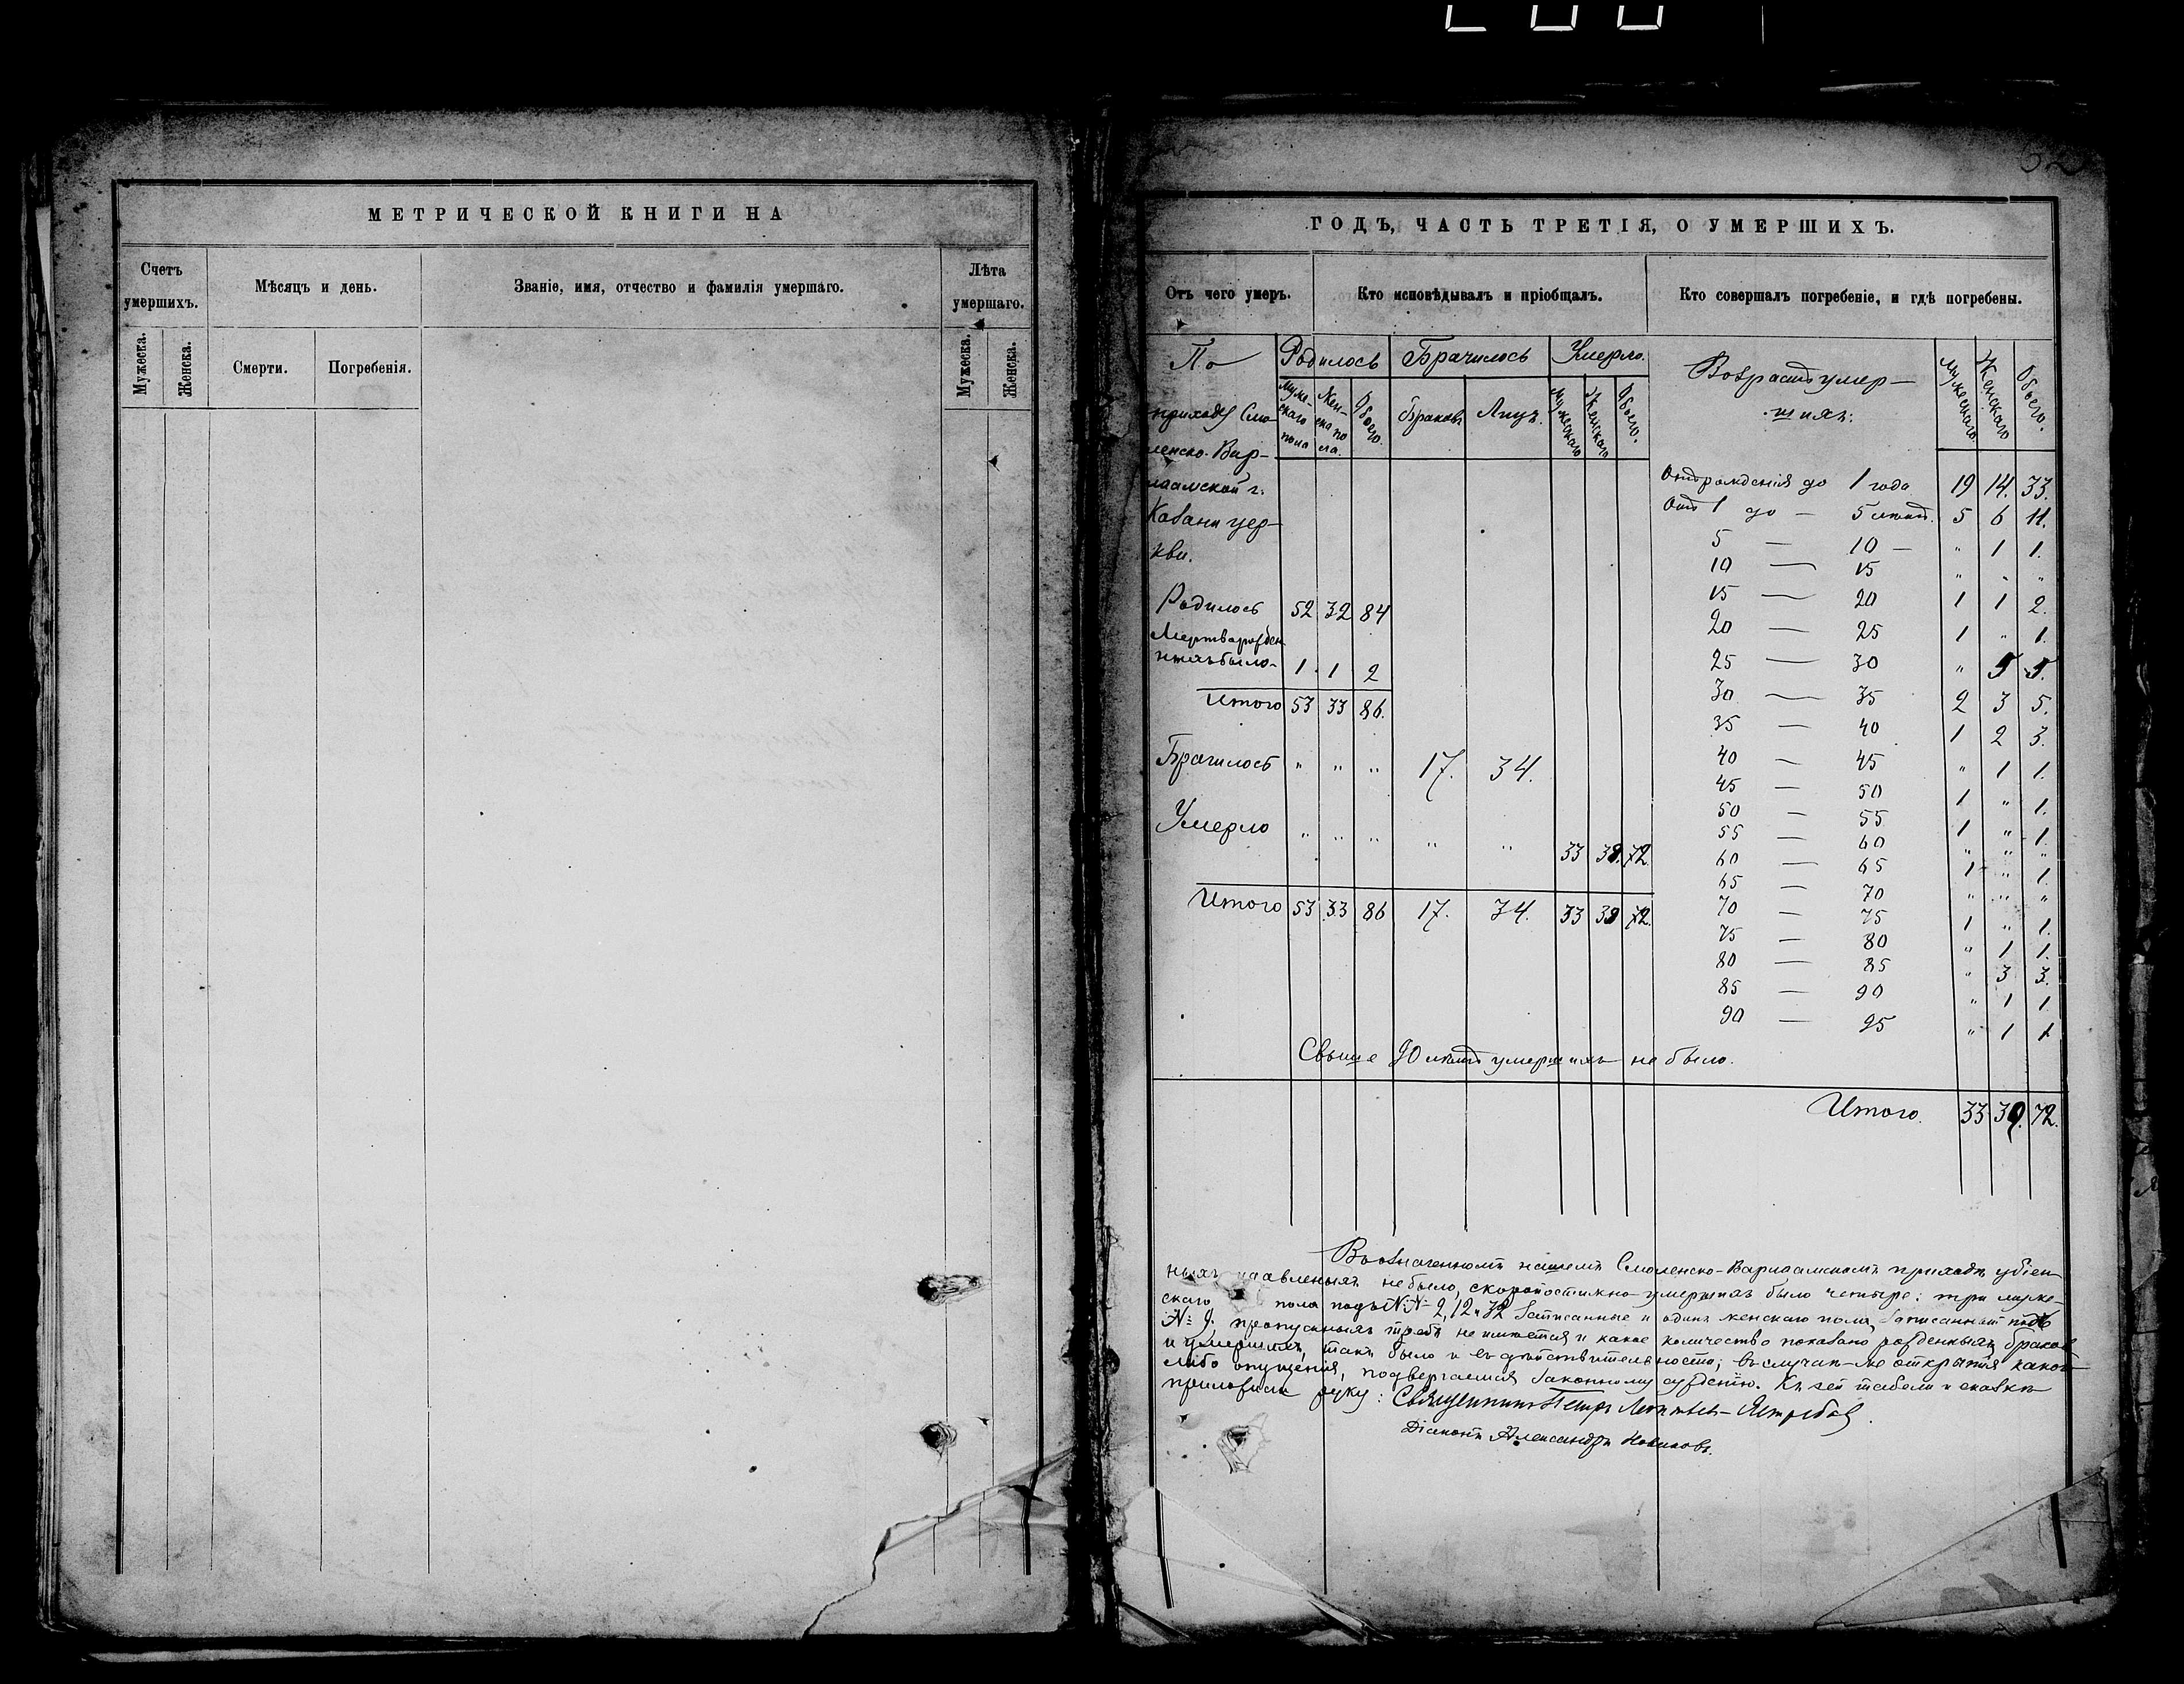 МЕТРИЧЕСКОЙ КНИГИ НА
Счетъ умершихъ.
Мѣсяцъ и день.
Званіе, имя, отчество и фамилія умершаго.
Лѣта умершаго.
Мужеска.
Женска.
Смерти.
Погребенія.
Мужеска.
Женска.
ГОДЪ, ЧАСТЬ ТРЕТІЯ, О УМЕРШИХЪ.
Отъ чего умеръ.
Кто исповѣдывалъ и пріобщалъ.
Кто совершалъ погребеніе, и гдѣ погребены.
По
приходу Смо-
ленско-Вар-
лаамской г.
Казани цер-
кви.
Родилось Брачилось Умерло.
Мужескаго пола Женска пола. Обоего. Браковъ Лицъ. Мужескаго Женскаго Обоего.
Родилось 52 32 84
Мертворожден-
ныхъ было- 1 1 2
Итого 53 33 86.
Брачилось " " " 17. 34.
Умерло " " " " " 33 39. 72.
Итого 53 33 86 17. 34. 33 39 72.
Возрастъ умер-
шихъ:
Мужескаго Женскаго Обоего.
Отъ рожденія до 1 года 19 14. 33.
Отъ 1 до — 5 лѣтъ. 5 6 11.
5 — 10 — " 1 1.
10 — 15 " " "
15 — 20 1 1 2.
20 — 25 1 " 1.
25 — 30 " 5 5.
30 — 35 2 3 5.
35 — 40 1 2 3.
40 — 45 " 1 1.
45 — 50 1 " 1.
50 — 55 1 " 1.
55 — 60 " " "
60 — 65 1 " 1.
65 — 70 " " "
70 — 75 1 " 1.
75 — 80 " 1 1.
80 — 85 " 3 3.
85 — 90 " 1 1
90 — 95 " 1 1
Свыше 90 лѣтъ умершихъ не было.
Итого. 33 39. 72.
Въ означенномъ нашемъ Смоленско-Варлаамскомъ приходѣ убіен-
ныхъ, удавленыхъ не было, скоропостижно умершихъ было четыре: три муже-
скаго пола подъ №№ 2, 12 и 32 записанные и одинъ женскаго пола, записанный подъ
№ 9. пропусныхъ требъ не имѣется и какое количество показано рожденныхъ браков
и умершихъ, такъ было и въ дѣйствительности; въ случаѣ-же открытія какой
либо опущенія, подвергаемся законному сужденію. Къ сей табели и сказкѣ
приложили руку: Священникъ Петръ Ястребовъ.
Діаконъ Александръ Новиковъ.